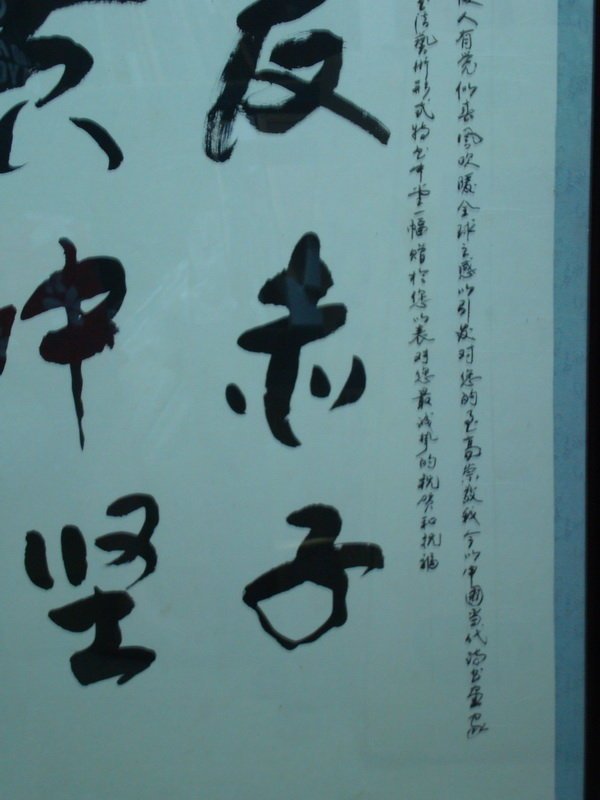 人有觉似春風吹暖全球之感以引发对您的至高崇敬我今以中國当代诗书画家
法藝術形式特书中堂一幅赠於您以表对您最诚挚的祝贺和祝福
赤子
中坚